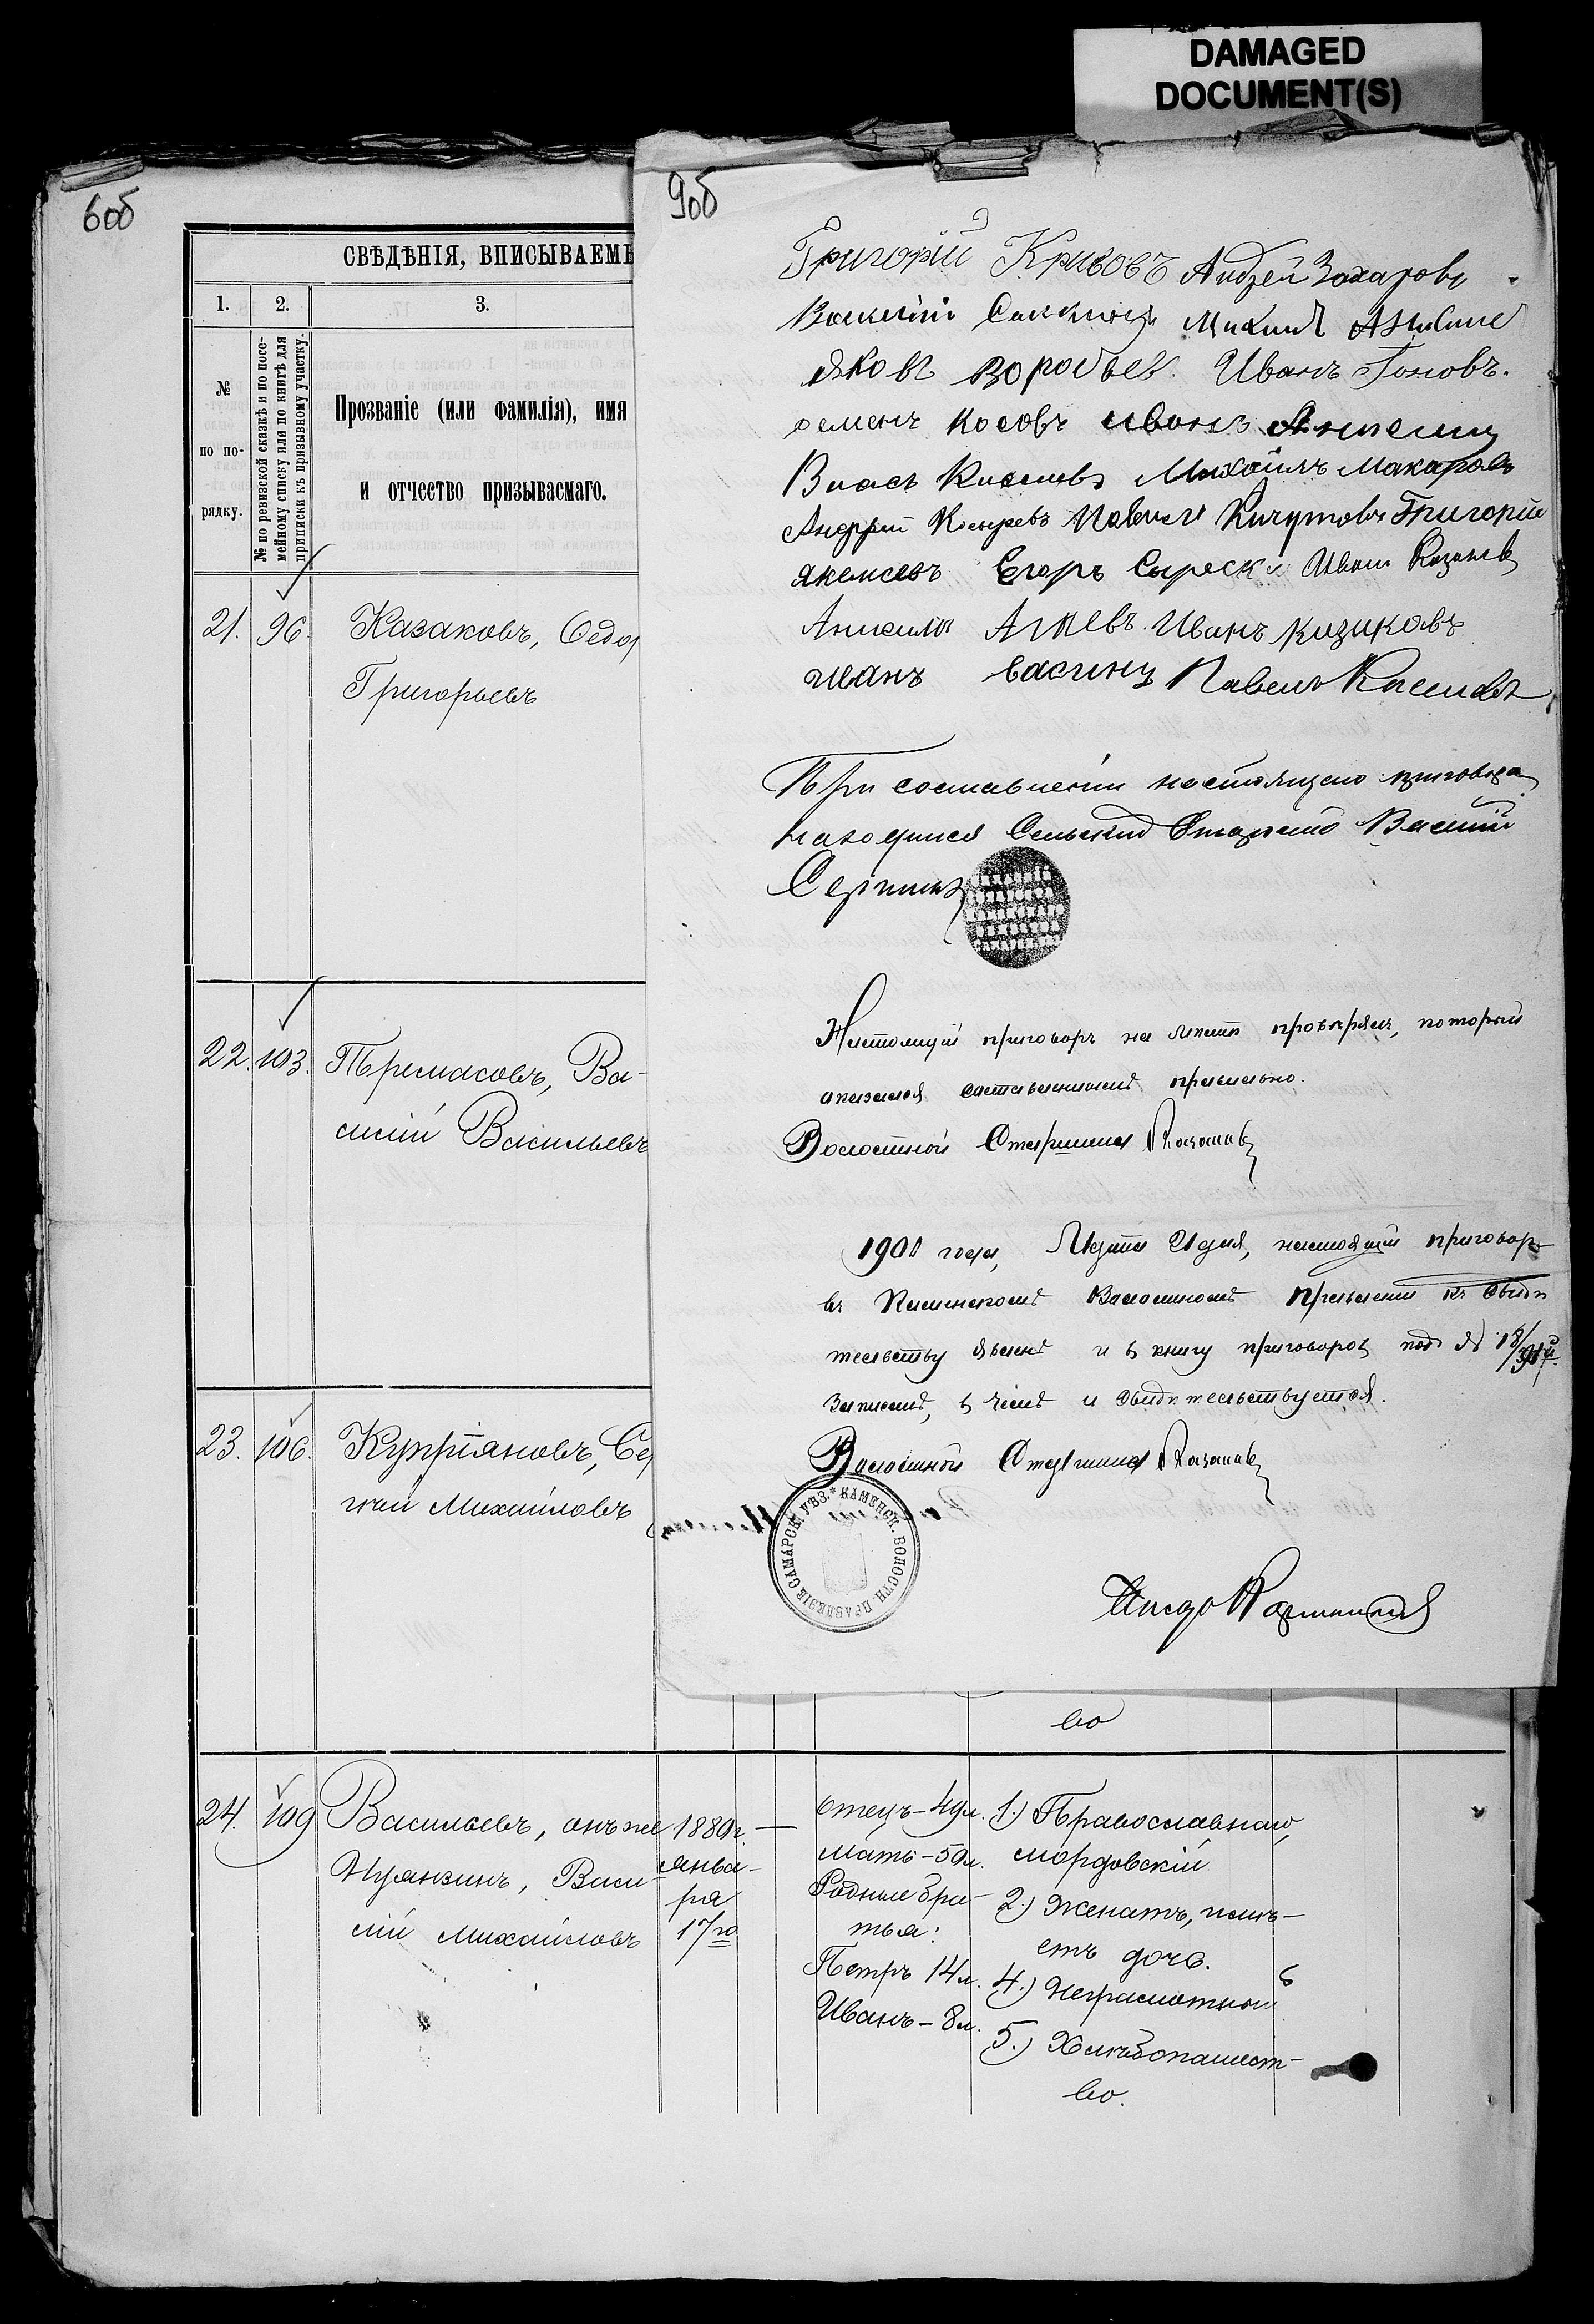 DAMAGED
DOCUMENT(S)
6об
9об
СВѢДѢНІЯ, ВПИСЫВАЕМЫ
1. 2. 3.
№
по по-
рядку.
№ по ревизской сказкѣ и по посе-
мейному списку или по книгѣ для
приписки къ призывному участку.
Прозваніе (или фамилія), имя
и отчество призываемаго.
21. 96. Казаковъ, Ѳедо
Григорьевъ
22. 103. Пьремасовъ, Ва-
силій Васильевъ
23. 106. Купріяновъ, Се
гѣй Михайловъ
24. 109 Васильевъ, онъ же
Нуянзинъ, Васи-
лій Михайловъ
1880г.
янва-
ря
17го
—
Отецъ – 49л.
Мать – 50л.
Родные бра-
тья:
Петръ 14л.
Иванъ – 8л.
во
1.) Православнаго,
мордовскій
2.) Женатъ, имѣ-
етъ дочь.
4.) Неграмотной
5.) Хлѣбопашест-
во.
Григорій Кривовъ Андрей Захаровъ
Василій Михаилъ
Яковъ Воробьев. Иванъ
семенъ Косовъ иванъ
Власъ Киселевъ Михаилъ Макаровъ
Андрей Косыревъ Павелъ Кичутовъ Григорій
Егоръ Иванъ Казаковъ
Анисимъ Агѣевъ Иванъ Казаковъ
иванъ васинъ Павелъ Киселевъ
При составленіи настоящаго приговора
находился Сельскій Староста Василій
Настоящій приговоръ на мѣстѣ провѣрялъ, который
оказался составленнымъ правильно.
Волостной Старшина Казаковъ
1901 года, Марта дня, настоящій приговоръ
въ Каменскомъ Волостномъ Правленіи къ свидѣ
тельству явленъ и въ книгу приговоровъ подъ № 18/
записанъ, въ чемъ и свидѣтельствуется.
Волостной Старшина Казаковъ
САМАРСК. УѢЗ. * КАМЕНСК. ВОЛОСТН. ПРАВЛЕНІЕ